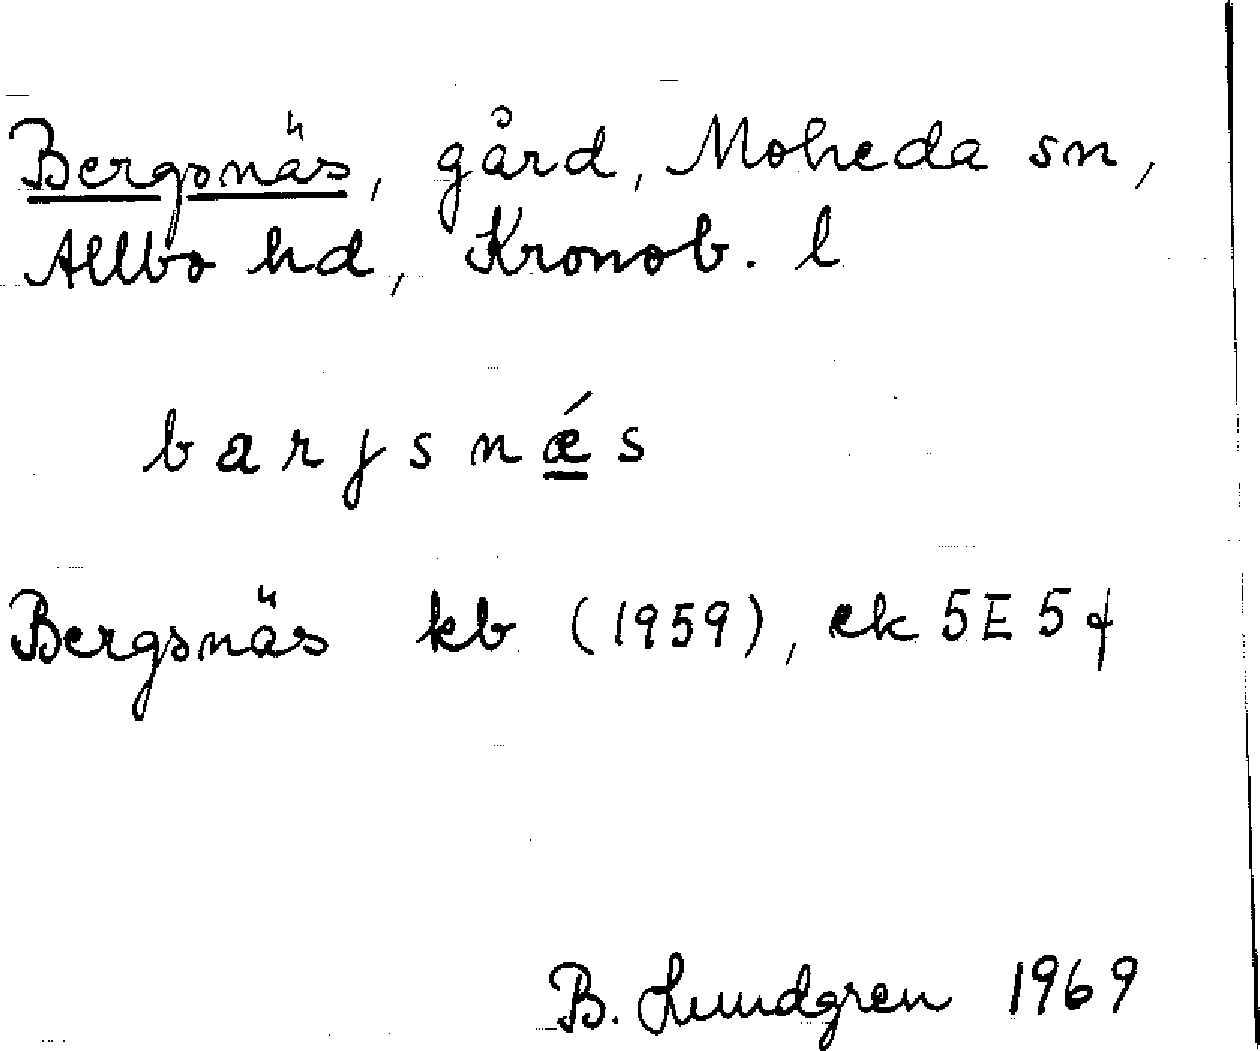 Bergsnäs, gård, Moheda sn,
Allbo hd, Kronob. l
barjsnǽs
Bergsnäs kb (1959), ek 5E 5f
B. Lundgren 1969